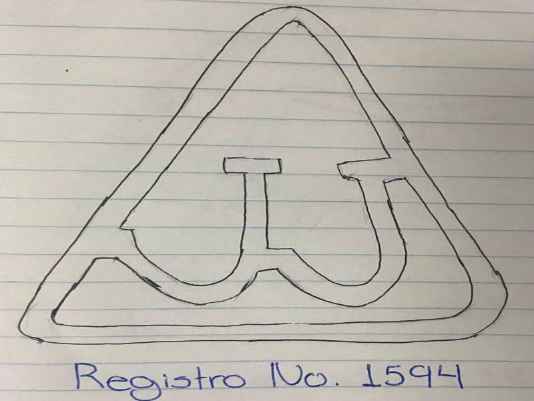 Registro No. 1594